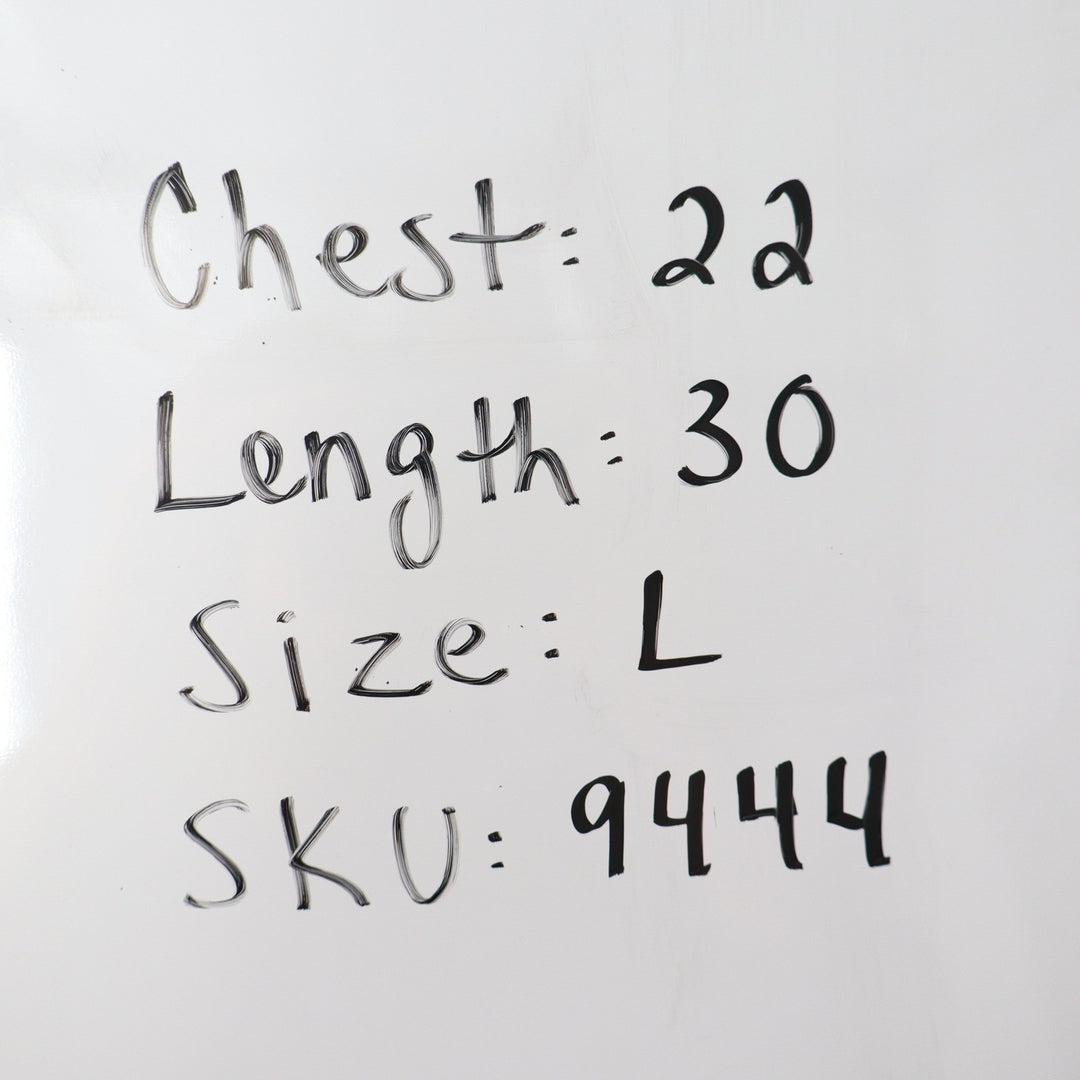 Chest: 22
Length: 30
Size: L
SKU: 9444